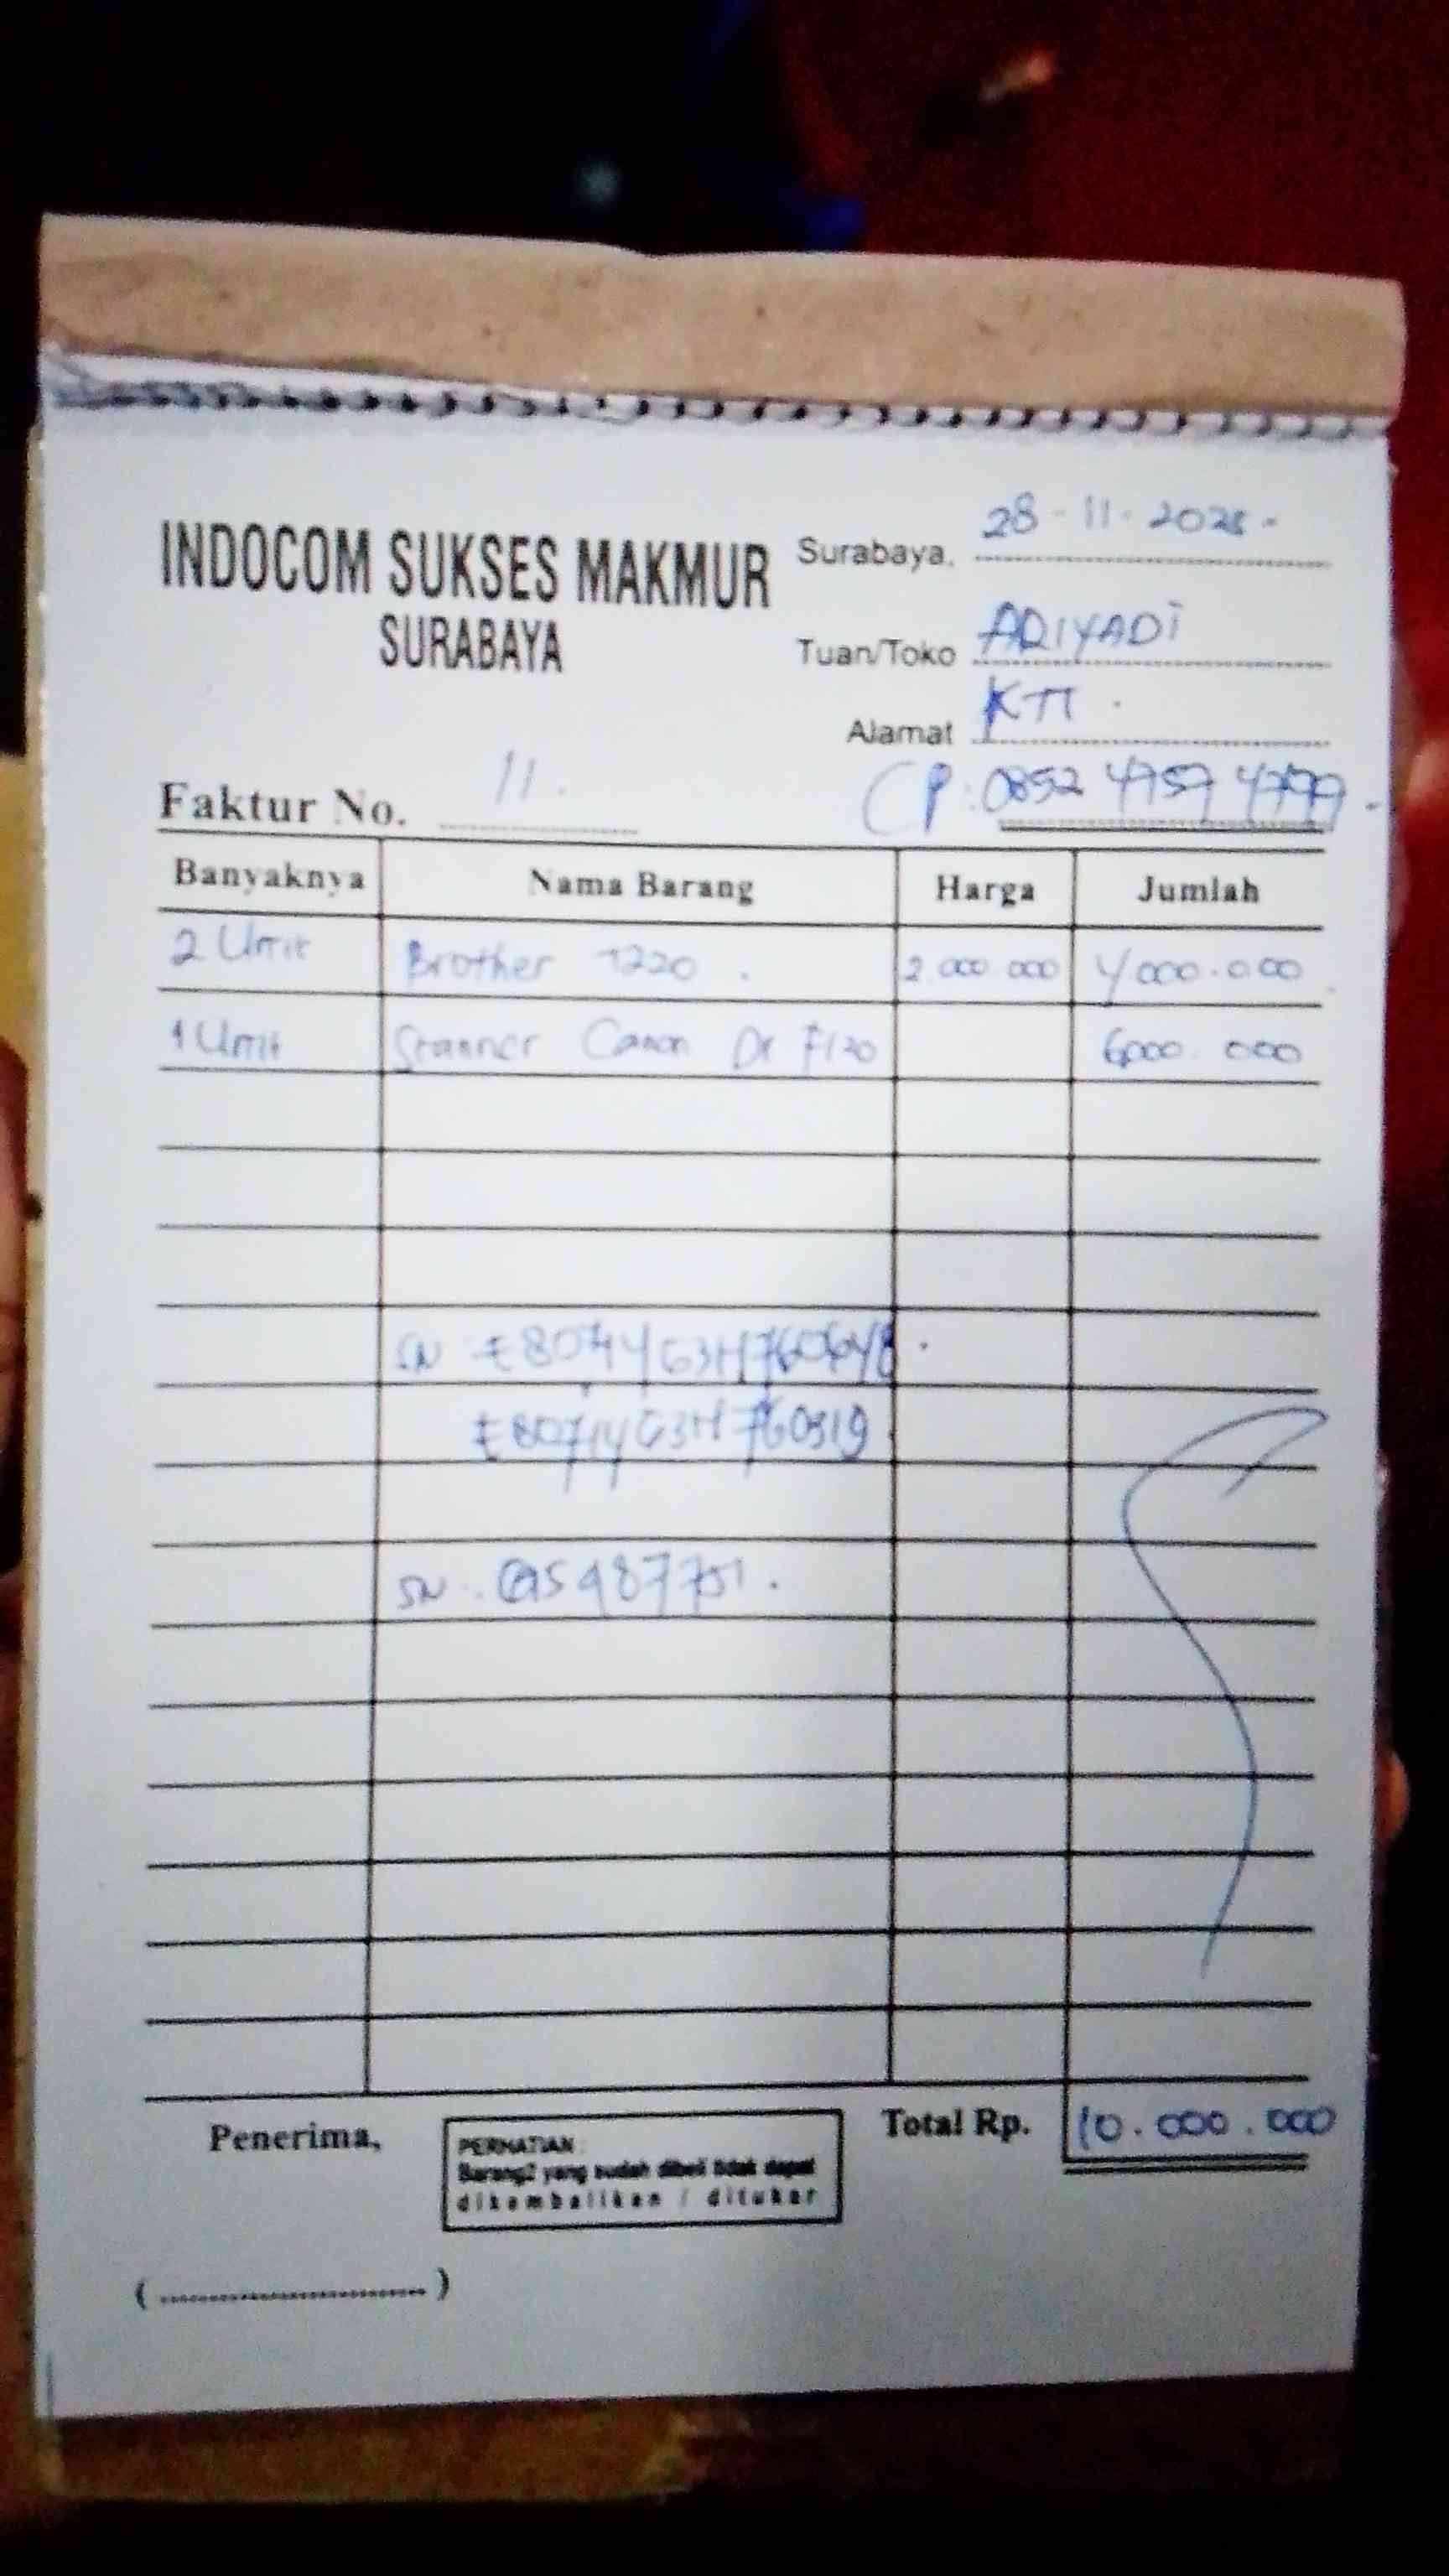 INDOCOM SUKSES MAKMUR
SURABAYA
Surabaya, 28-11-2025-
Tuan/Toko ARIYADI
Alamat KTI.
Faktur No. 11.
CP: 0852 4757 4799-
Banyaknya Nama Barang Harga Jumlah
2 Unit Brother T220. 2.000.000 4000.000
1 Unit Scanner Canon Dr F120 6000.000
SN
SN. 
Penerima,
Total Rp. 10.000.000
PERHATIAN :
Barang2 yang sudah dibeli tidak dapat
dikembalikan / ditukar
(..............................)